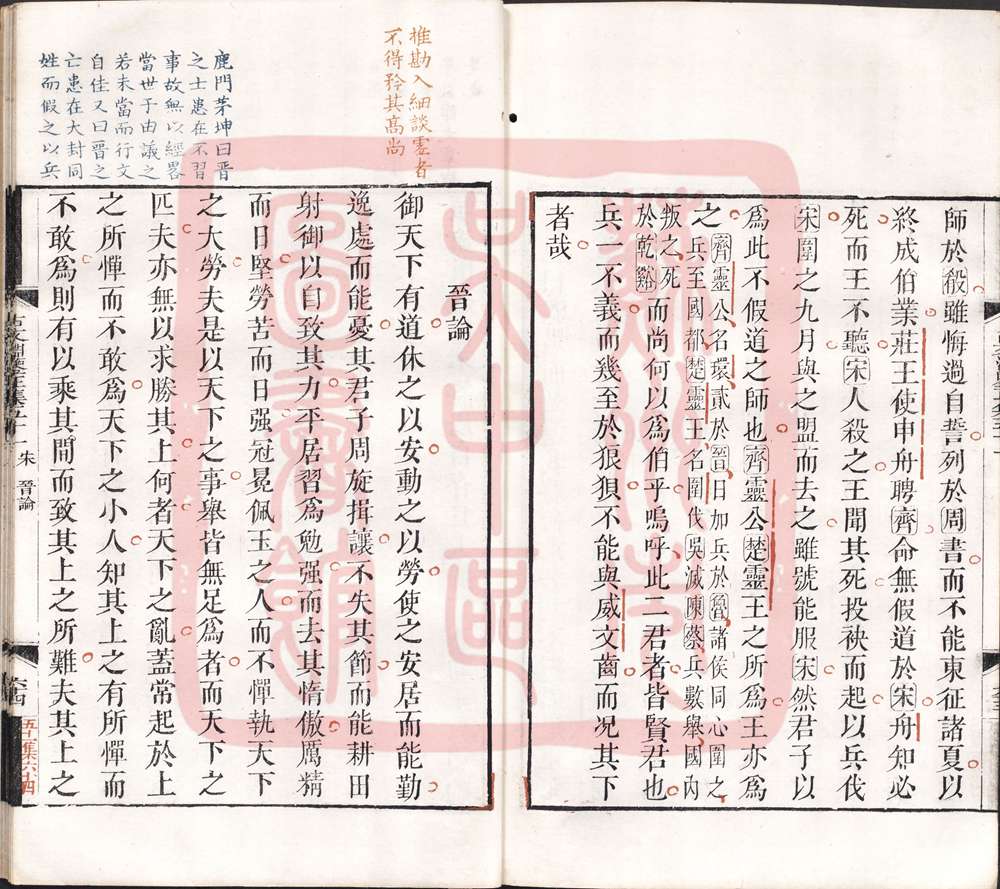 師於殽雖悔過自誓列於周書而不能東征諸夏以
終成伯業莊王使申舟聘齊命無假道於宋舟知必
死而王不聽宋人殺之王聞其死投袂而起以兵伐
宋圍之九月與之盟而去之雖號能服宋然君子以
爲此不假道之師也齊靈公楚靈王之所爲王亦爲
之齊靈公名環貳於晉日加兵於魯諸侯同心圍之
兵至國都楚靈王名圍伐吳滅陳蔡兵數舉國內
叛之死
於乾谿而尚何以爲伯乎嗚呼此二君者皆賢君也
兵一不義而幾至於狼狽不能與威文齒而况其下
者哉
椎勘入細談虛者
不得矜其高尚
晉論
御天下有道休之以安動之以勞使之安居而能勤
逸處而能憂其君子周旋揖讓不失其節而能耕田
射御以自致其力平居習爲勉强而去其惰傲厲精
而日堅勞苦而日强冠冕佩玉之人而不憚執天下
之大勞夫是以天下之事舉皆無足爲者而天下之
匹夫亦無以求勝其上何者天下之亂蓋常起於上
之所憚而不敢爲天下之小人知其上之有所憚而
不敢爲則有以乘其間而致其上之所難夫其上之
鹿門茅坤曰晉
之士患在不習
事故無以經畧
當世子由議之
若未當而行文
自佳又曰晉之
亡患在大封同
姓而假之以兵
朱 晉論
六十四
五十一集六十四